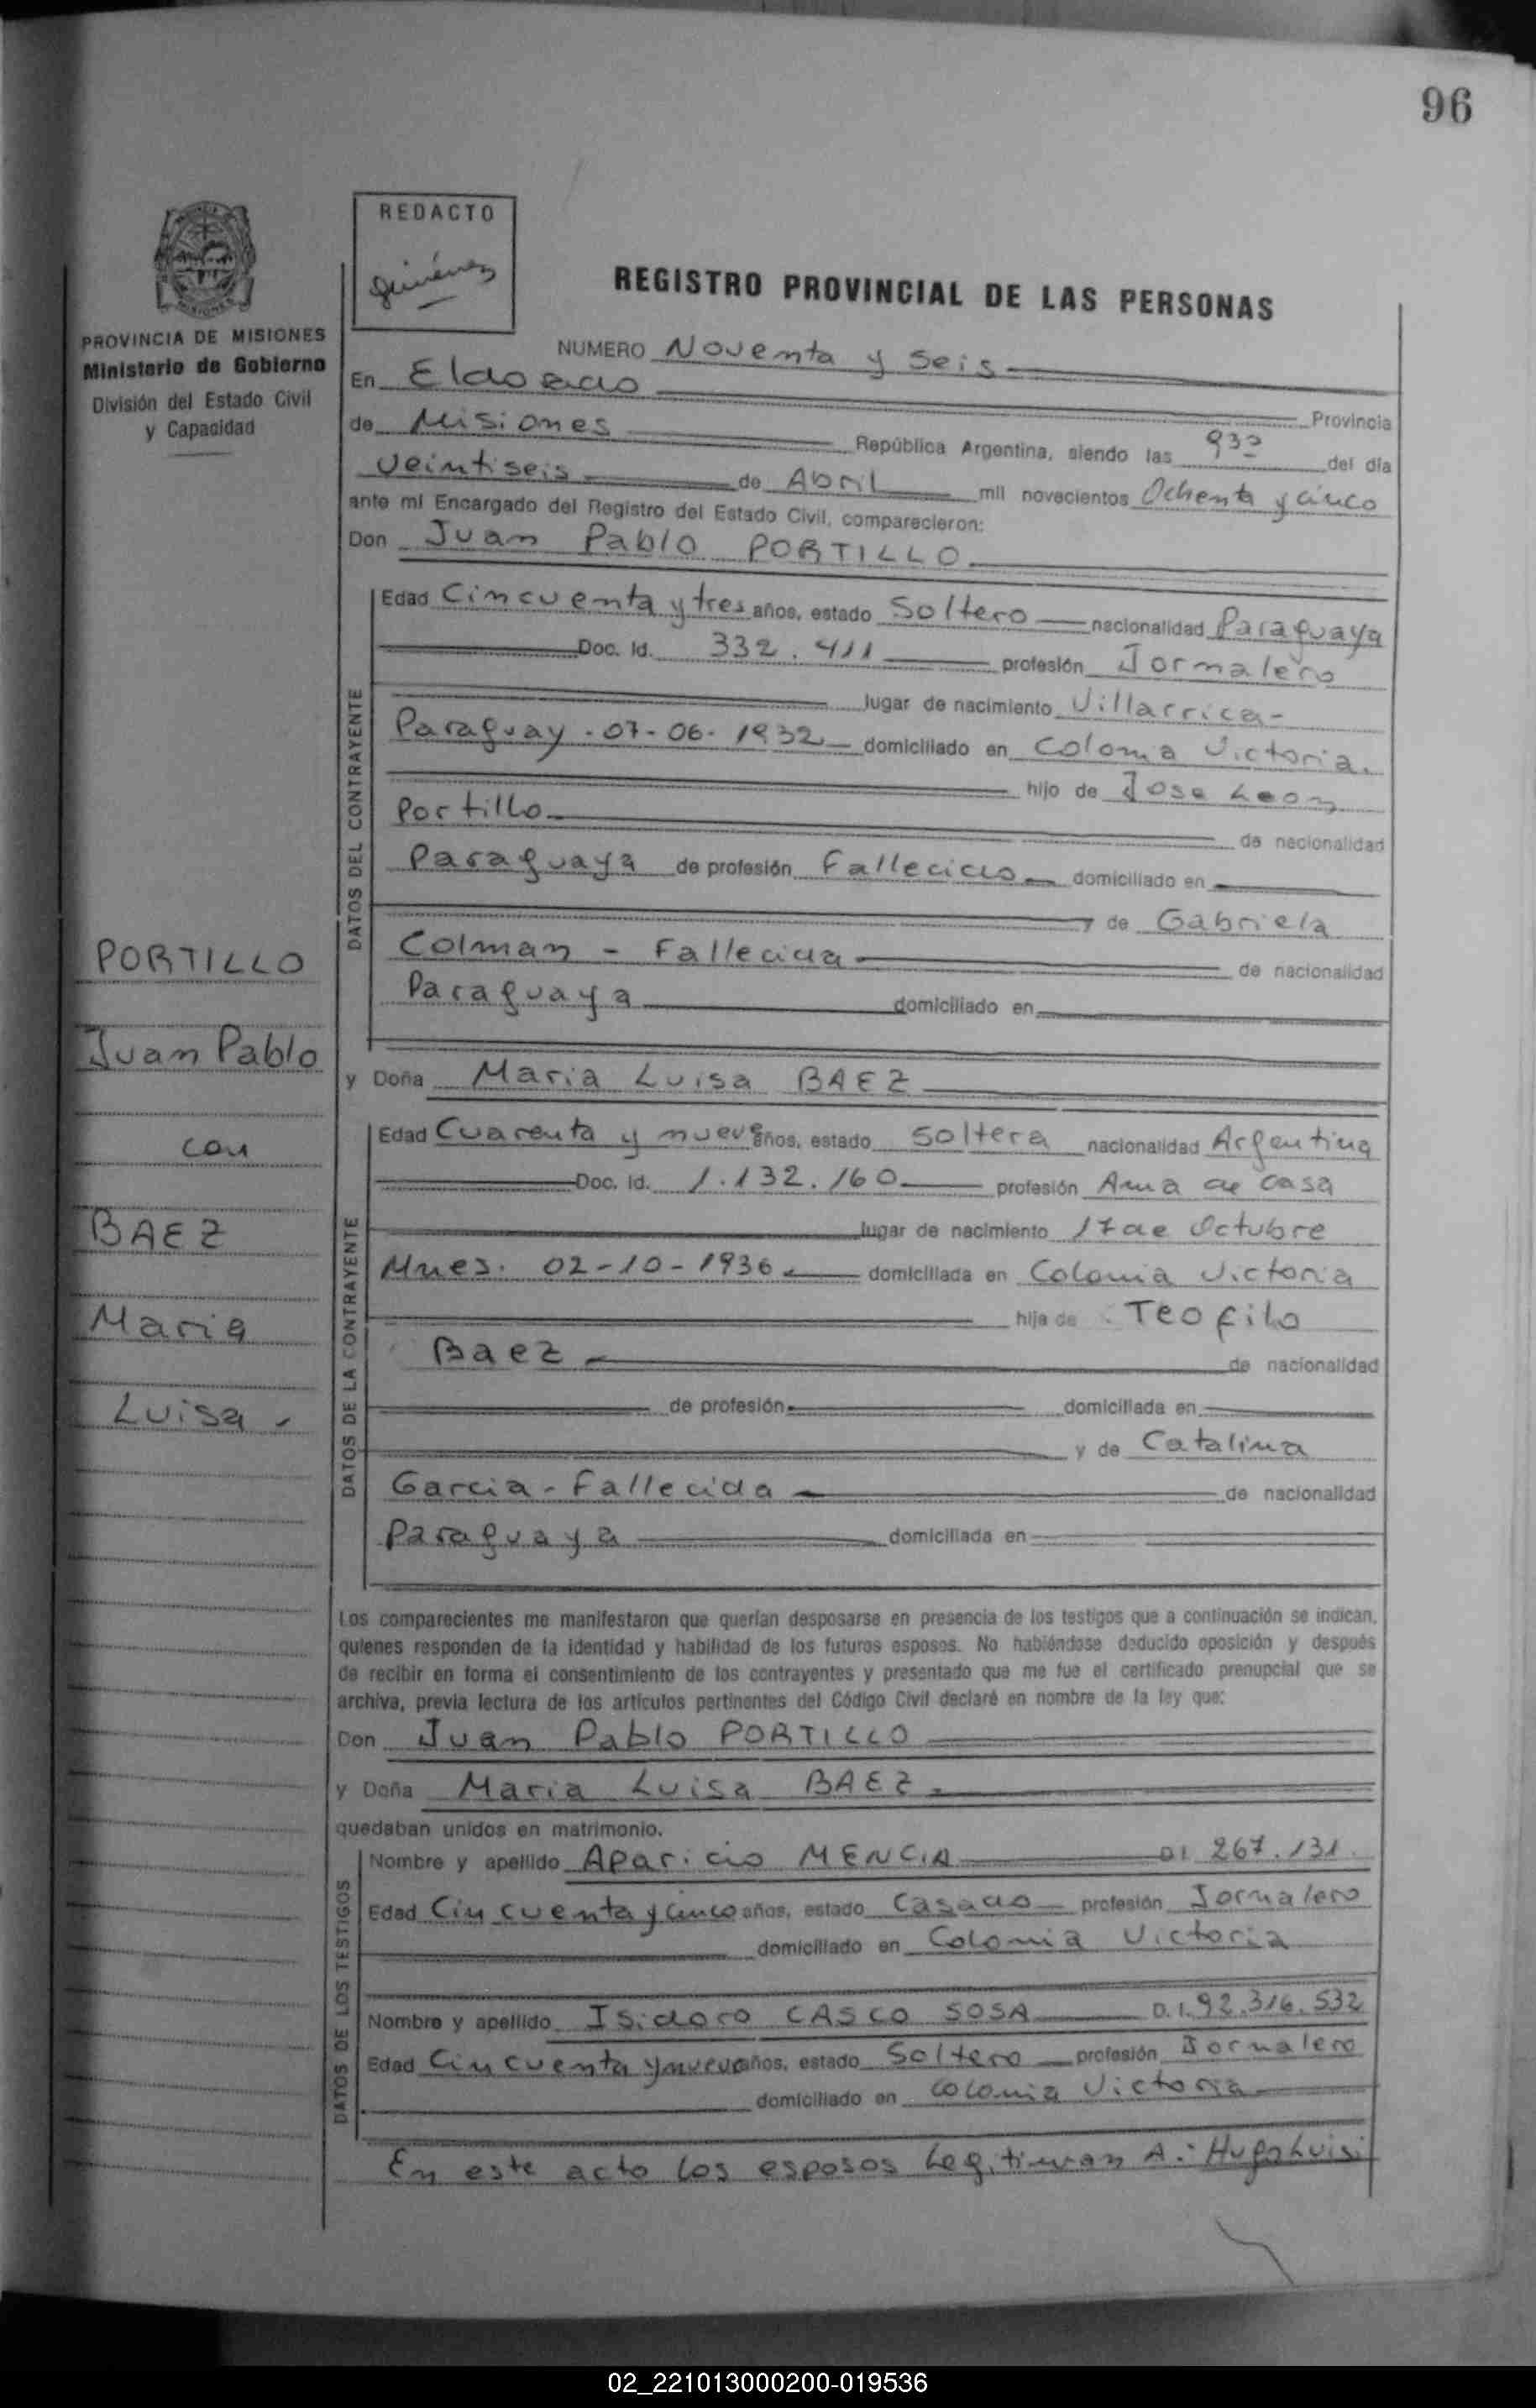 96
REDACTO
Giménez
REGISTRO PROVINCIAL DE LAS PERSONAS
PROVINCIA DE MISIONES
Ministerio de Gobierno
División del Estado Civil
y Capacidad
NUMERO Noventa y Seis
En Eldorado Provincia
de Misiones República Argentina, siendo las 930 del día
Veintiseis de Abril mil novecientos Ochenta y cinco
ante mí Encargado del Registro del Estado Civil, comparecieron:
Don Juan Pablo PORTILLO
DATOS DEL CONTRAYENTE
Edad Cincuenta y tres años, estado Soltero nacionalidad Paraguaya
Doc. Id. 332.411 profesión Jornalero
lugar de nacimiento Villarrica-
Paraguay - 07-06-1932 domicilliado en Colonia Victoria.
hijo de Jose Leon
Portillo de nacionalidad
Paraguaya de profesión Fallecido domiciliado en
y de Gabriela
Colman - Fallecida de nacionalidad
Paraguaya domiciliado en
y Doña Maria Luisa BAEZ
DATOS DE LA CONTRAYENTE
Edad Cuarenta y nueve años, estado soltera nacionalidad Argentina
Doc. Id. 1.132.160 profesión Ama de casa
lugar de nacimiento 17 de Octubre
Mnes. 02-10-1936 domicillada en Colonia Victoria
hija de Teofilo
Baez de nacionalidad
de profesión domiciliada en
y de Catalina
Garcia - Fallecida de nacionalidad
Paraguaya domiciliada en
PORTILLO
Juan Pablo
con
BAEZ
Maria
Luisa -
Los comparecientes me manifestaron que querían desposarse en presencia de los testigos que a continuación se indican,
quienes responden de la identidad y habilidad de los futuros esposos. No habiéndose deducido oposición y después
de recibir en forma el consentimiento de los contrayentes y presentado que me fue el certificado prenupcial que se
archiva, previa lectura de los artículos pertinentes del Código Civil declaré en nombre de la ley que:
Don Juan Pablo PORTILLO
y Doña Maria Luisa BAEZ
quedaban unidos en matrimonio.
DATOS DE LOS TESTIGOS
Nombre y apellido Aparicio MENCIA DI 267.131.
Edad Cincuenta y cinco años, estado Casado profesión Jornalero
domiciliado en Colonia Victoria
Nombre y apellido Isidoro CASCO SOSA D.I. 92.316.532
Edad Cincuenta y nueve años, estado Soltero profesión Jornalero
domiciliado en Colonia Victoria
En este acto los esposos Legitiman A: Hugo Luis i
02_221013000200-019536